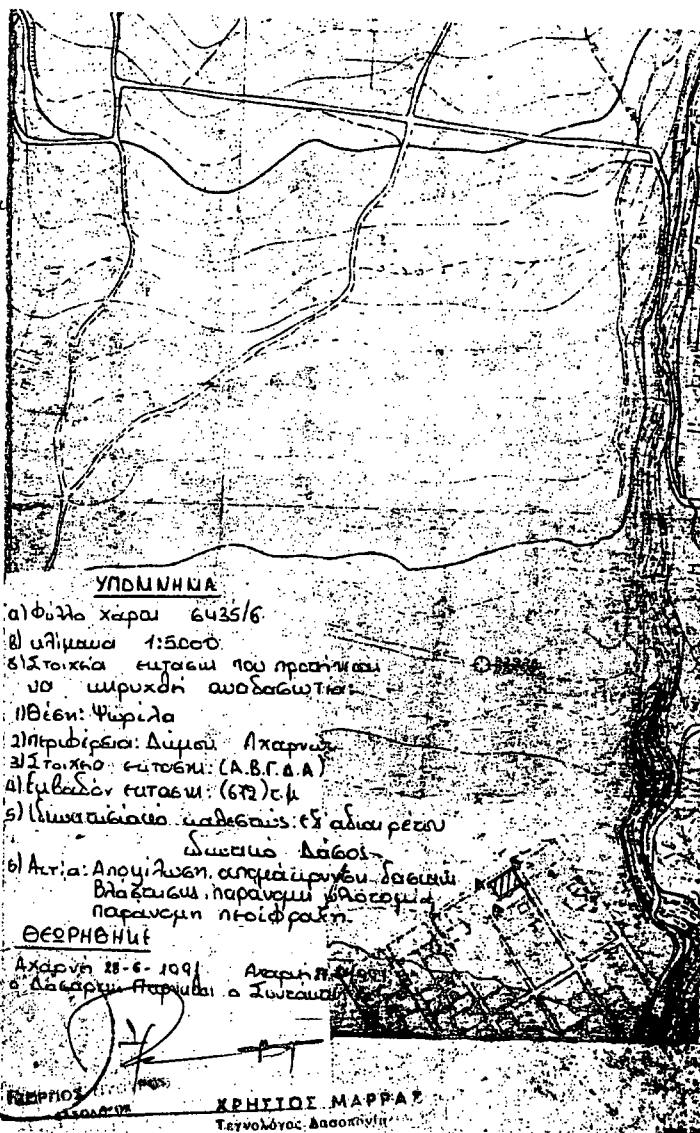 ΥΠΟΜΝΗΜΑ
α) Φύλλο χάρτου 6435/6
β) κλίμακα 1:5000
γ) Στοιχεία εκτάσεως που προτείνεται
να κηρυχθή αναδασωτέα:
1) Θέση: Ψωρίλα
2) Περιφέρεια: Δήμου Αχαρνών
3) Στοιχεία εκτάσεως: (Α.Β.Γ.Δ.Α)
4) Εμβαδόν εκτάσεως: (672) τ.μ
5) Ιδιοκτησιακό καθεστώς: εξ αδιαιρέτου
Ιδιωτικό Δάσος
6) Αιτία: Αποψίλωση, απομάκρυνση δασικής
βλάστησης, παράνομη υλοτομία
παράνομη περίφραξη.
ΘΕΩΡΗΘΗΚΕ
Αχαρνή 28-6-1991 Αχαρνή
ο Δασάρχης Πάρνηθας ο Συντάκτης
ΓΕΩΡΓΙΟΣ
ΧΡΗΣΤΟΣ ΜΑΡΡΑΣ
Τεχνολόγος Δασοπονίας